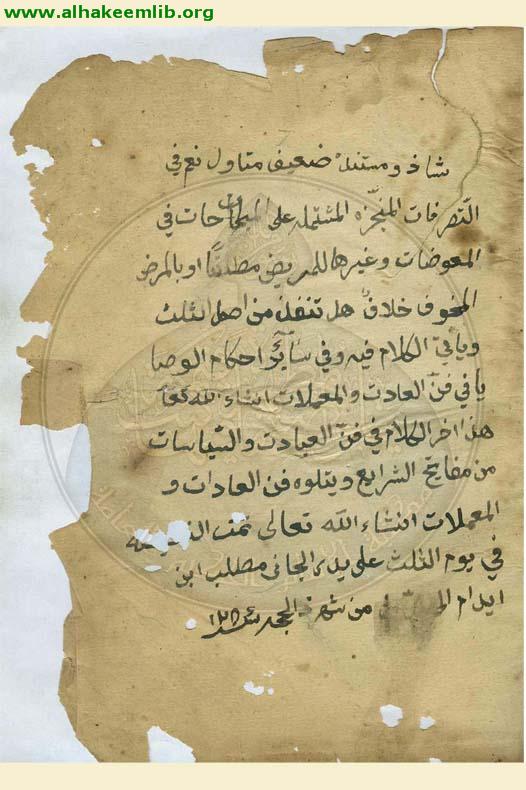 www.alhakeemlib.org
شاذ ومستنده ضعيف متاول نعم في
التصرفات المنجزه المشتمله على المحابات في
المعوضات وغيرها للمريض مطلقاً او بالمرض
المخوف خلاف هل تنفذ من اصل الثلث
وياتي الكلام فيه وفي سائر احكام الوصا
يا في فن العادت والمعملات انشاء الله تعا
هذا اخر الكلام في فن العبادت والسياسات
من مفاتيح الشرايع ويتلوه فن العادات و
المعملات انشاء الله تعالى تمت
في يوم الثلث على يد الجاني مطلب ابن
من شهر